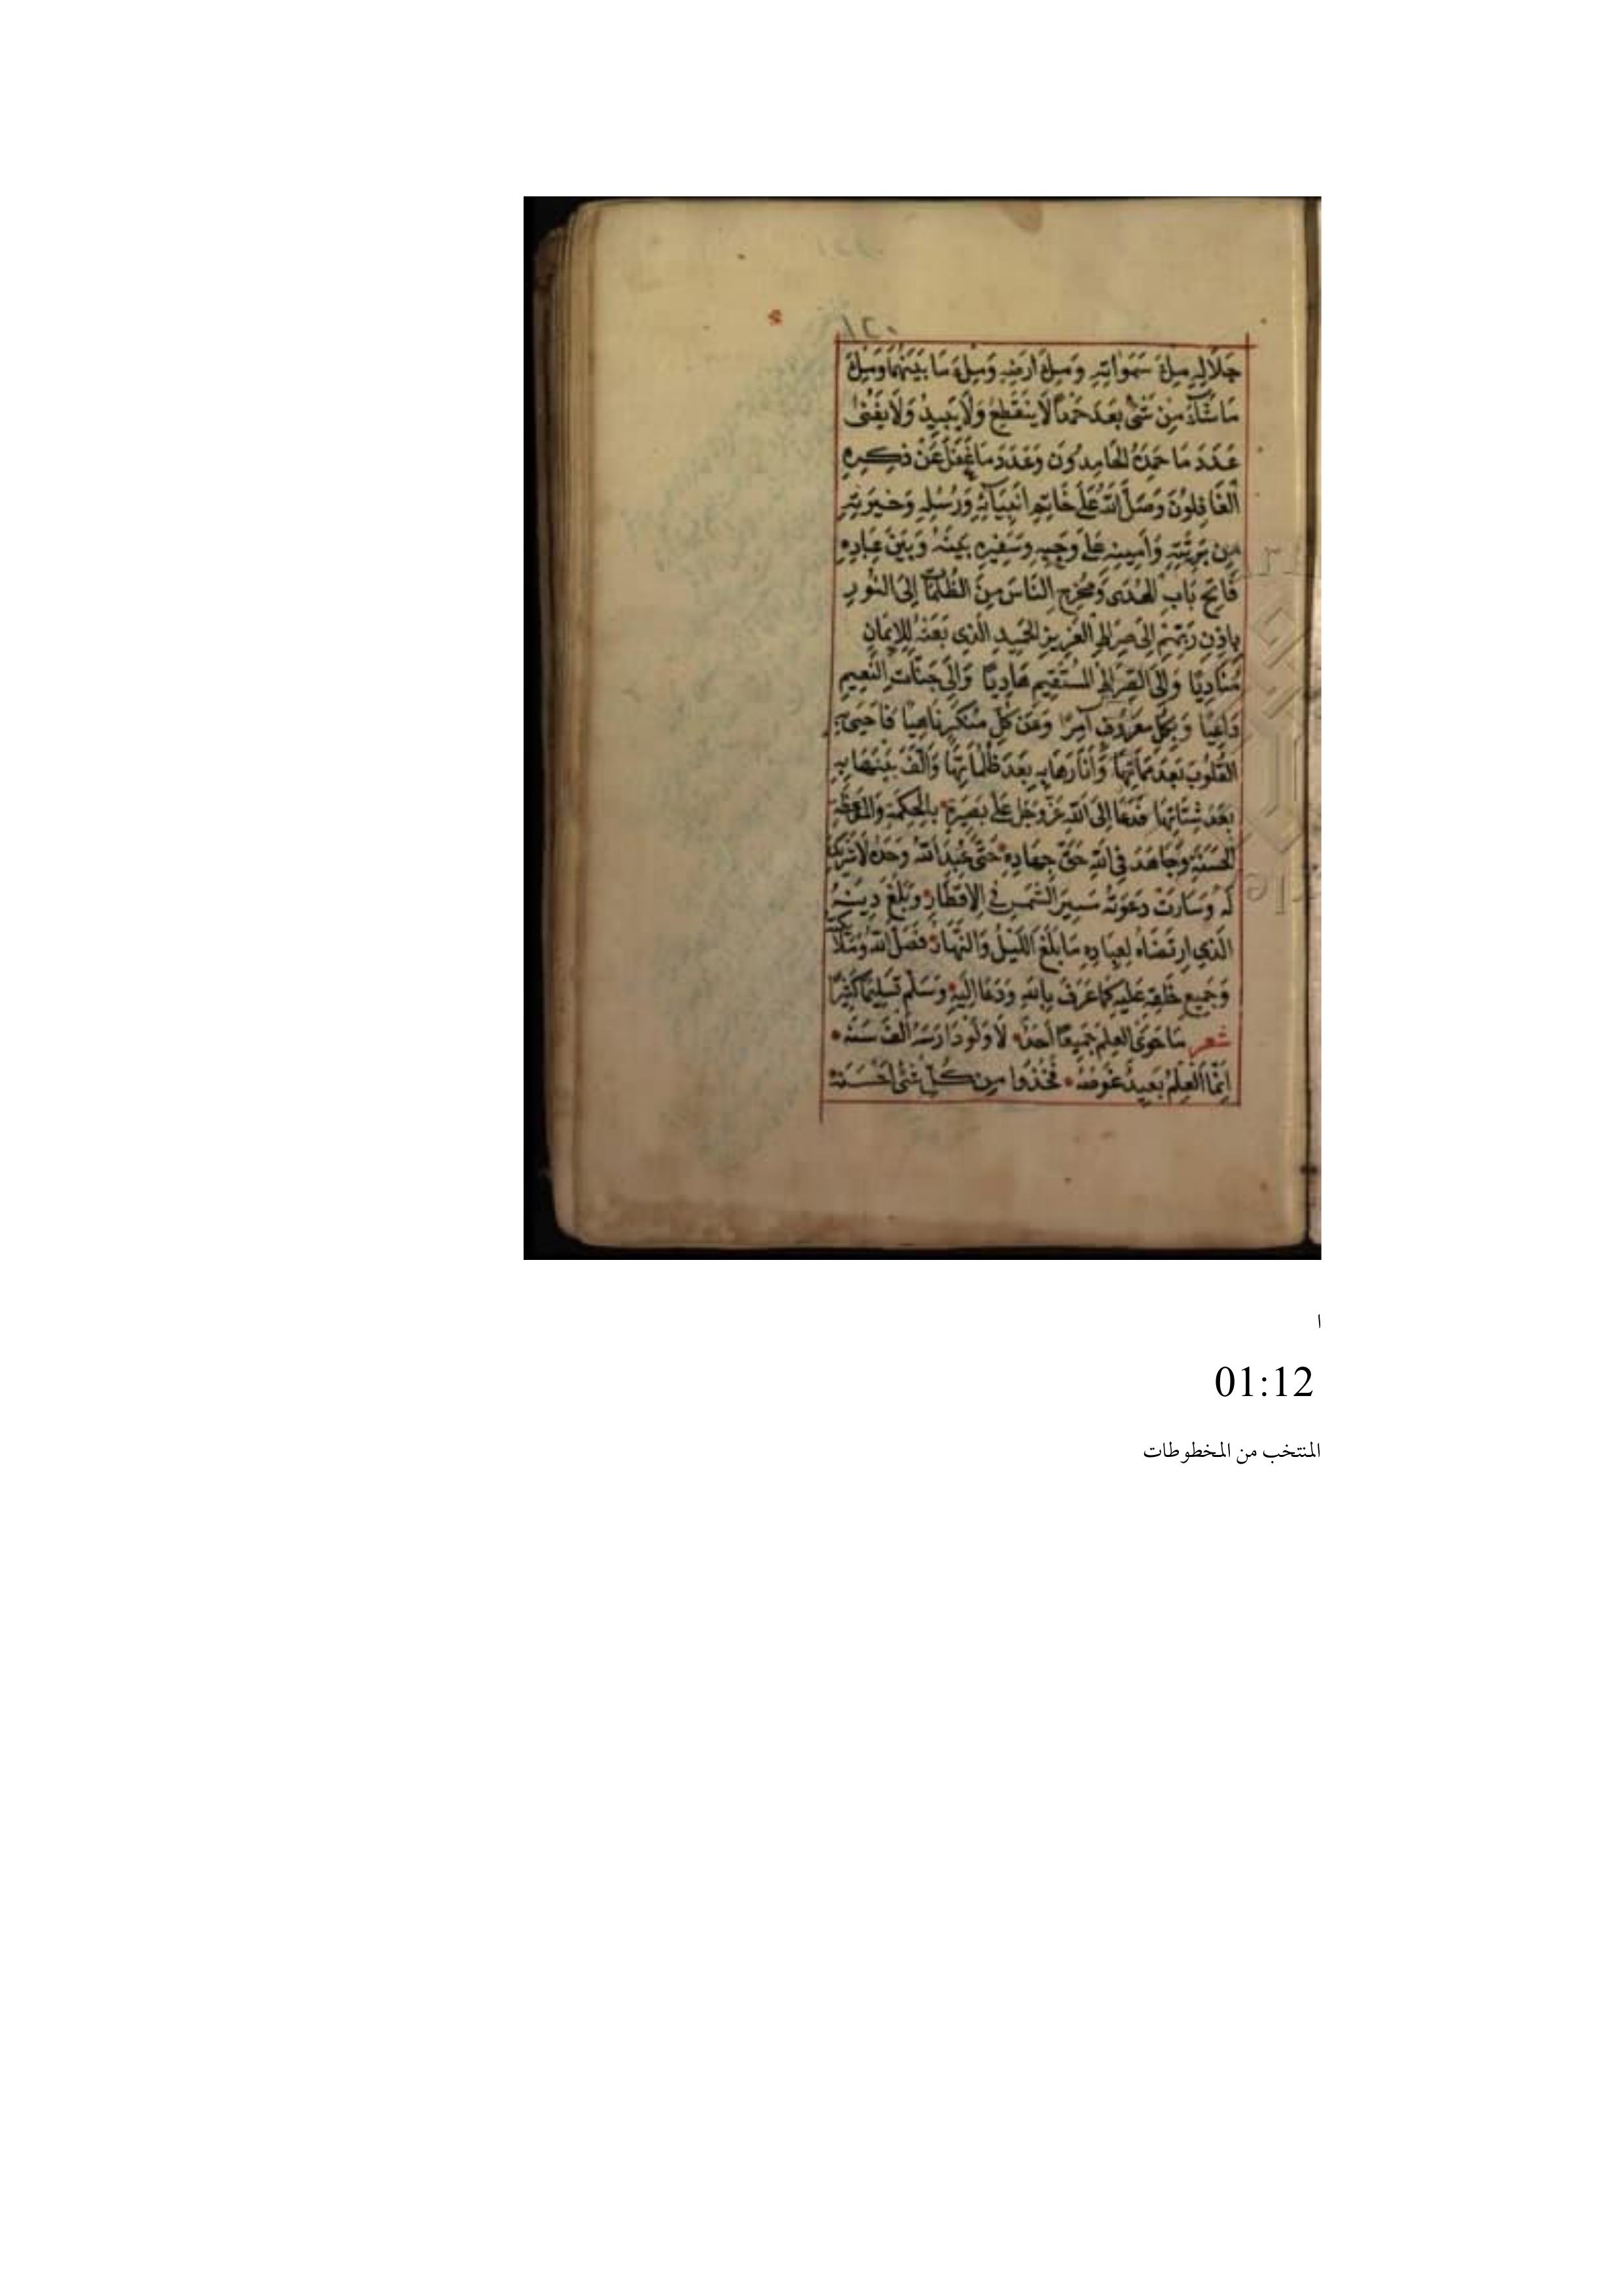 جَلَالِهِ مِلْءَ سَمَوَاتِهِ وَمِلْءَ اَرْضِهِ وَمِلْءَ مَا بَيْنَهُمَا وَمِلْءَ
مَا شَآءَ مِنْ شَىْءٍ بَعْدَ حَمْدًا لَا يَنْقَطِعُ وَلَا يَبِيدُ وَلَا يَفْنٰى
عَدَدَ مَا حَمِدَهُ الْحَامِدُونَ وَعَدَدَ مَا غَفَلَ عَنْ ذِكْرِهِ
الْغَافِلُونَ وَصَلَّى اللّٰهُ عَلَى خَاتِمِ اَنْبِيَآئِهِ وَرُسُلِهِ وَخِيَرَتِهِ
مِنْ بَرِيَّتِهِ وَاَمِينِهِ عَلَى وَحْيِهِ وَسَفِيرِهِ بَيْنَهُ وَبَيْنَ عِبَادِهِ
فَاتِحِ بَابِ الْهُدَى وَمُخْرِجِ النَّاسِ مِنَ الظُّلُمَاتِ اِلَى النُّورِ
بِاِذْنِ رَبِّهِمْ اِلَى صِرَاطِ الْعَزِيزِ الْحَمِيدِ الَّذِى بَعَثَهُ لِلْاِيمَانِ
مُنَادِيًا وَاِلَى الصِّرَاطِ الْمُسْتَقِيمِ هَادِيًا وَاِلَى جَنَّاتِ النَّعِيمِ
دَاعِيًا وَبِكُلِّ مَعْرُوفٍ آمِرًا وَعَنْ كُلِّ مُنْكَرٍ نَاهِيًا فَاَحْيَى بِهِ
الْقُلُوبَ بَعْدَ مَمَاتِهَا وَاَنَارَهَا بِهِ بَعْدَ ظُلُمَاتِهَا وَاَلَّفَ بَيْنَهَا بِهِ
بَعْدَ شَتَاتِهَا فَدَعَا اِلَى اللّٰهِ عَزَّ وَجَلَّ عَلَى بَصِيرَةٍ بِالْحِكْمَةِ وَالْمَوْعِظَةِ
الْحَسَنَةِ وَجَاهَدَ فِى اللّٰهِ حَقَّ جِهَادِهِ حَتَّى عُبِدَ اللّٰهُ وَحْدَهُ لَا شَرِيكَ
لَهُ وَسَارَتْ دَعْوَتُهُ سَيْرَ الشَّمْسِ فِى الْاَقْطَارِ وَبَلَغَ دِينُهُ
الَّذِى ارْتَضَاهُ لِعِبَادِهِ مَا بَلَغَ اللَّيْلُ وَالنَّهَارُ فَصَلَّى اللّٰهُ وَمَلَائِكَتُهُ
وَجَمِيعُ خَلْقِهِ عَلَيْهِ كَمَا عَرَّفَ بِاللّٰهِ وَدَعَا اِلَيْهِ وَسَلَّمَ تَسْلِيمًا كَثِيرًا
شعر مَا حَوَى الْعِلْمَ جَمِيعًا اَحَدٌ لَا وَلَوْ دَارَسَهُ اَلْفَ سَنَه
اِنَّمَا الْعِلْمُ بَعِيدٌ غَوْصُهُ فَخُذُوا مِنْ كُلِّ شَىْءٍ اَحْسَنَهْ
ا
01:12
المنتخب من المخطوطات